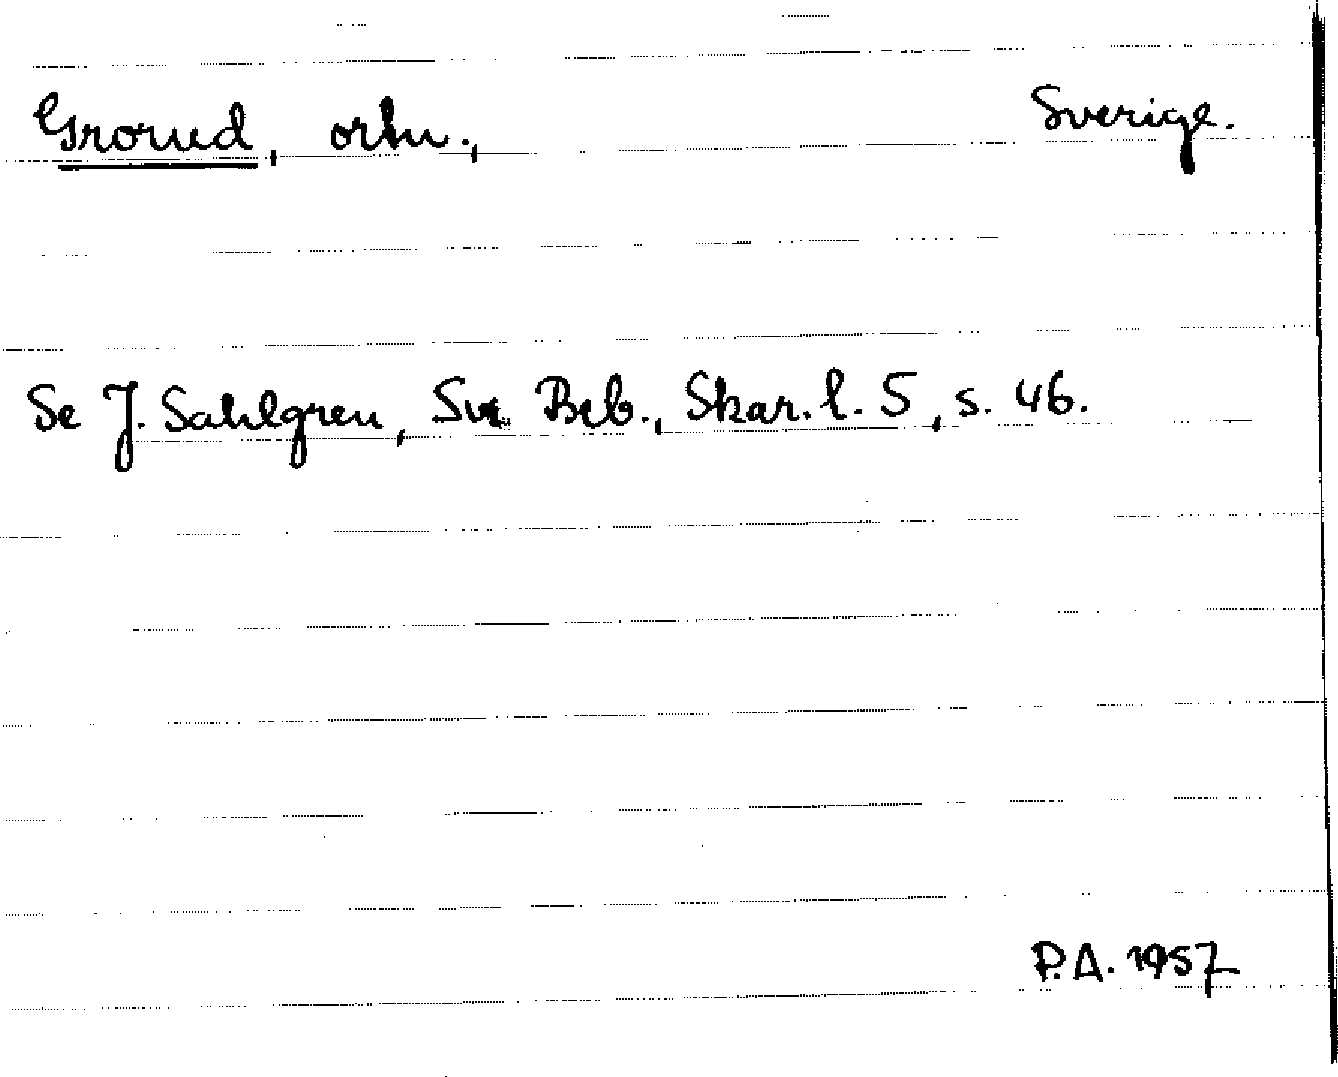 Grorud, ortn., Sverige.
Se J. Sahlgren, Sv. Beb., Skar. l. 5, s. 46.
P.A. 1957